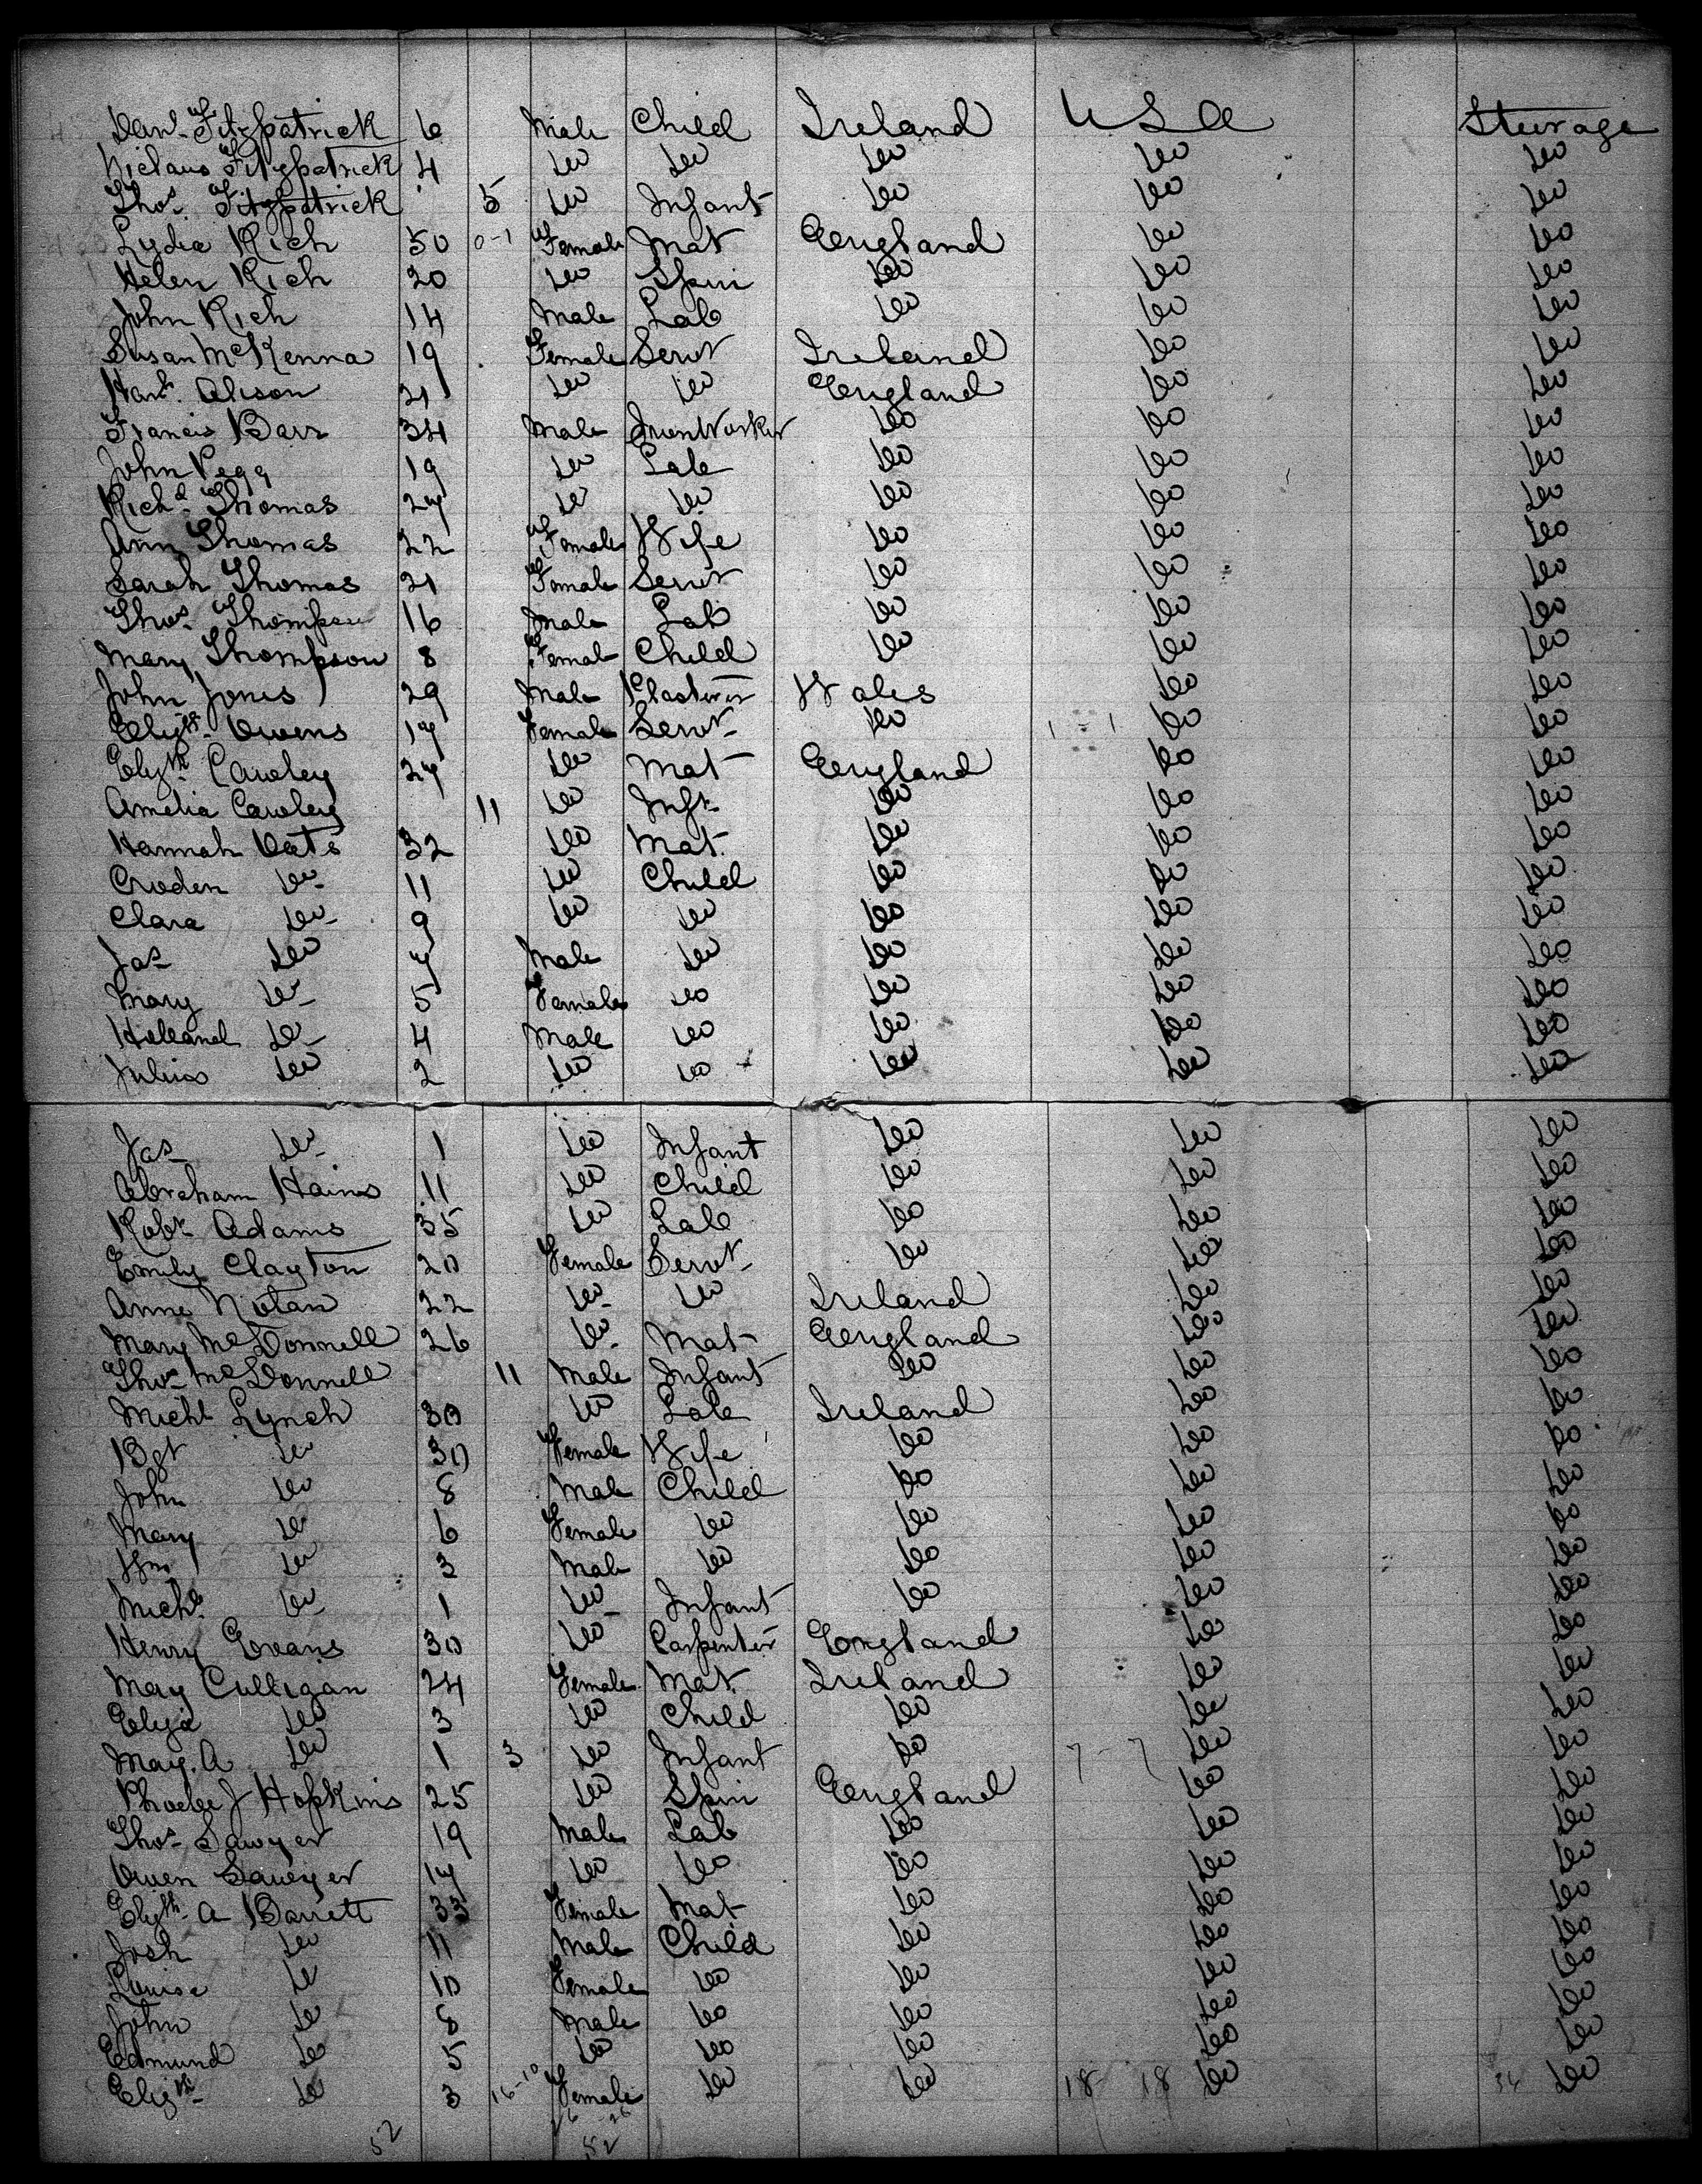 Danl Fitzpatrick 6 Male Child Ireland U S A Steerage
Niclaus Fitzpatrick 4 Do Do Do Do Do
Thos Fitzpatrick 5 Do Infant Do Do Do
Lydia Rich 50 0-1 Female Mat England Do Do
Helen Rich 20 Do Spin Do Do Do
John Rich 14 Male Lab Do Do Do
Susan McKenna 19 Female Servt Ireland Do Do
Hanh Alison 21 Do Do England Do Do
Francis Barr 34 Male Iron Worker Do Do Do
John Pegg 19 Do Lab Do Do Do
Richd Thomas 24 Do Do Do Do Do
Ann Thomas 22 Female Wife Do Do Do
Sarah Thomas 21 Female Servt Do Do Do
Thos Thompson 16 Male Lab Do Do Do
Mary Thompson 8 Female Child Do Do Do
John Jones 29 Male Plasterer Wales Do Do
Elizth Owens 19 Female Servt Do 1-1 Do Do
Elizth Cawley 24 Do Mat England Do Do
Amelia Cawley 11 Do Inft Do Do Do
Hannah Oats 32 Do Mat Do Do Do
Croden Do 11 Do Child Do Do Do
Clara Do 9 Do Do Do Do Do
Jas Do Male Do Do Do Do
Mary Do 5 Female Do Do Do Do
Holland Do 4 Male Do Do Do Do
Julius Do 2 Do Do Do Do Do
Jas Do 1 Do Infant Do Do Do
Abraham Hains 11 Do Child Do Do Do
Robt Adams 35 Do Lab Do Do Do
Emily Clayton 20 Female Servt Do Do Do
Anne Nolan 22 Do Do Ireland Do Do
Mary McDonnell 26 Do Mat England Do Do
Thos McDonnell 11 Male Infant Do Do Do
Michl Lynch 30 Do Lab Ireland Do Do
Bgt Do 30 Female Wife Do Do Do
John Do 8 Male Child Do Do Do
Mary Do 6 Female Do Do Do Do
Wm Do 3 Male Do Do Do Do
Michl Do 1 Do Infant Do Do Do
Henry Evans 30 Do Carpenter England Do Do
Mary Culligan 24 Female Mat Ireland Do Do
Eliza Do 3 Do Child Do Do Do
Mary. A Do 1 3 Do Infant Do 7-7 Do Do
Phoebe J Hopkins 25 Do Spin England Do Do
Thos Sawyer 19 Male Lab Do Do Do
Owen Sawyer 14 Do Do Do Do Do
Elizth A Barrett 33 Female Mat Do Do Do
Josh Do 11 Male Child Do Do Do
Louisa Do 10 Female Do Do Do Do
John Do 8 Male Do Do Do Do
Edmund Do 5 Do Do Do Do Do
Elizth Do 3 16-10 Female Do Do 18 18 Do 34 Do
52 52